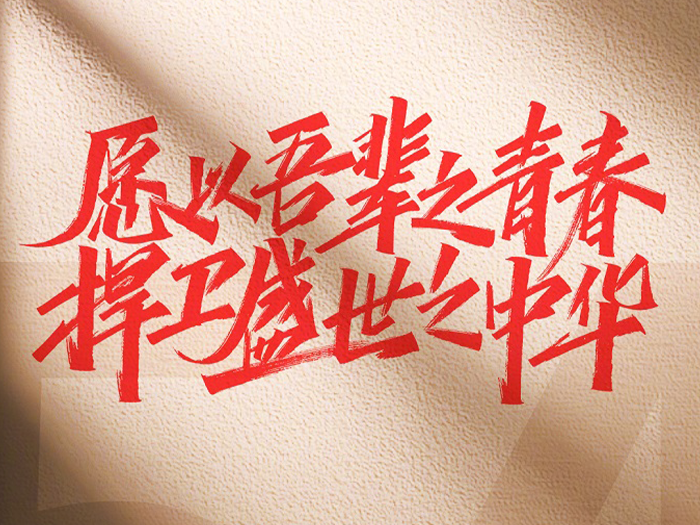 愿以吾辈之青春
捍卫盛世之中华